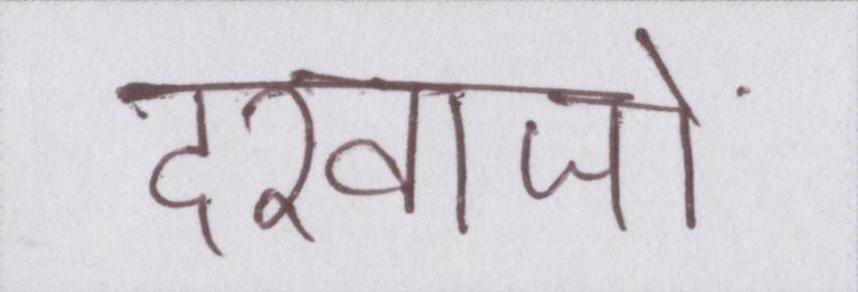 दरवाजों